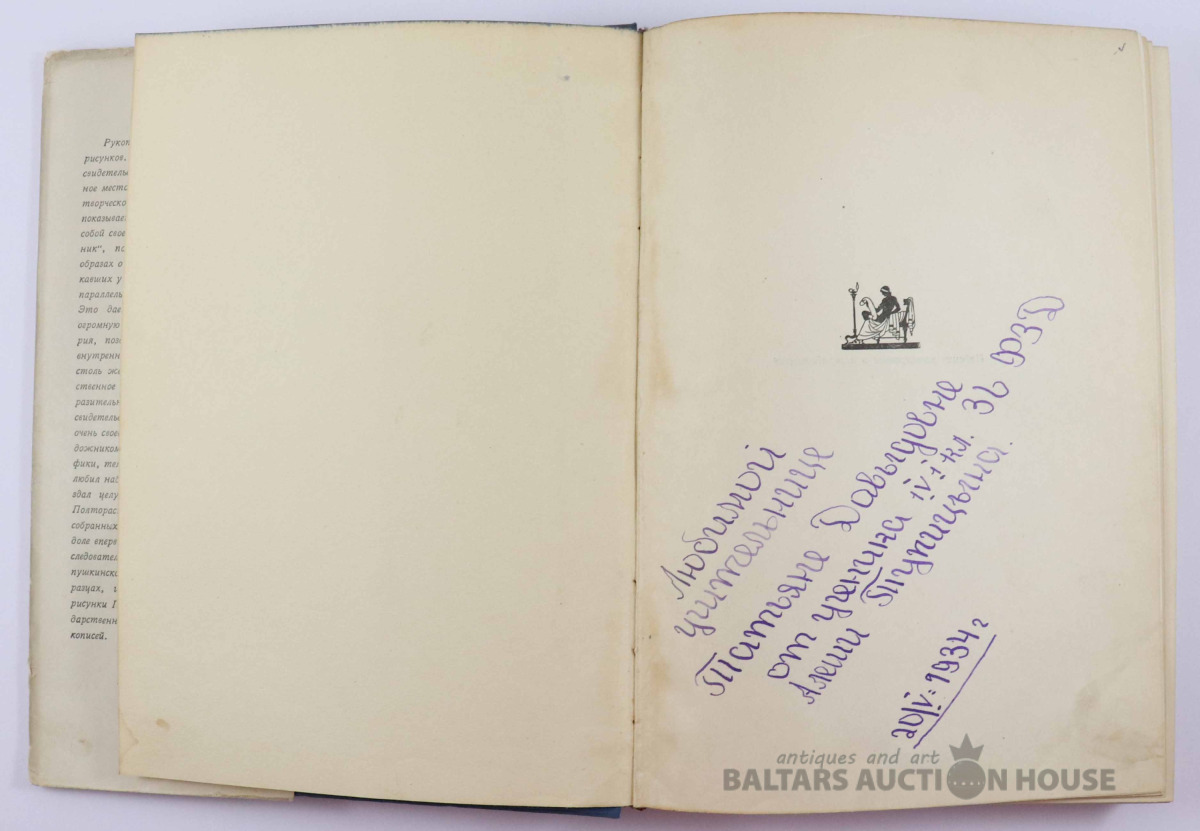 Рукоп
рисунков.
свидетель
ное место
творческо
показывае
собой свое
ник“, по
образах о
кавших у
параллель
Это дае
огромную
рия, поз
внутренн
столь же
ственное
разительн
свидетель
очень свое
дожником
фики, те
любил на
здал целу
Полторас
собранных
доле впер
следовател
пушкинск
разцах, 
рисунки Г
дарственн
кописей.
Любимой
учительнице
Татьяне Давыдовне
от ученика IV кл. 36 ФЗД
Алеши Тупицына.
20/V=1934 г
antiques and art
BALTARS AUCTION HOUSE